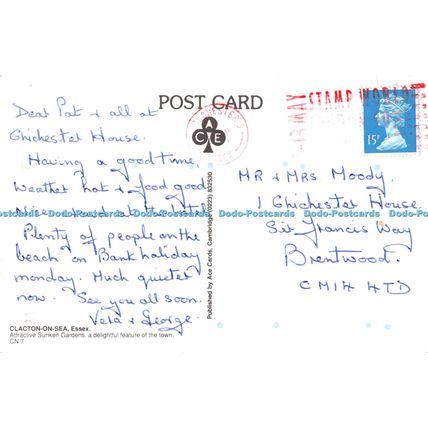 POST CARD
Dear Pat + all at
Chichester House.
Having a good time.
Weather hot + food good
Plenty of people on the
beach on Bank holiday
monday. Much quieter
now. See you all soon.
Vera + George.
CLACTON-ON-SEA, Essex.
Attractive Sunken Gardens, a delightful feature of the town.
CN 7
ACE
Published by Ace Cards, Cambridge
STAMP WORLD
15P
MR + MRS Moody.
1 Chichester House
Sir Francis Way
Brentwood.
CM14 4TD
Dodo-Postcards Dodo-Postcards Dodo-Postcards Dodo-Postcards Dodo-Postcards